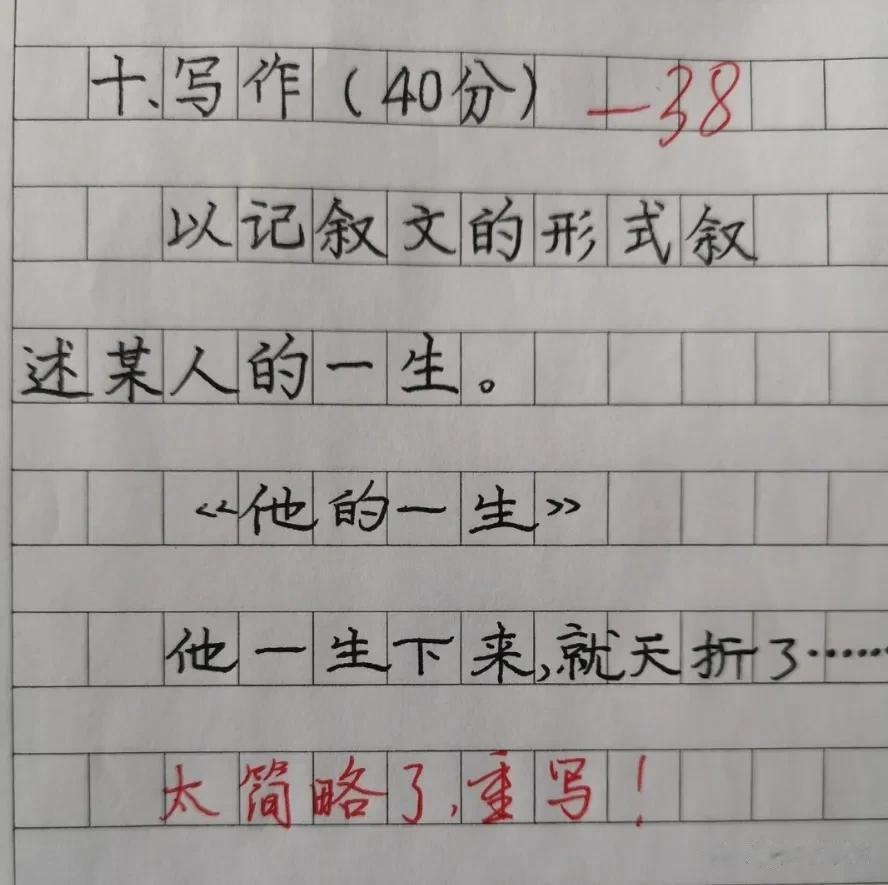 十、写作（40分） -38
以记叙文的形式叙
述某人的一生。
《他的一生》
他一生下来,就天折了……
太简略了,重写！